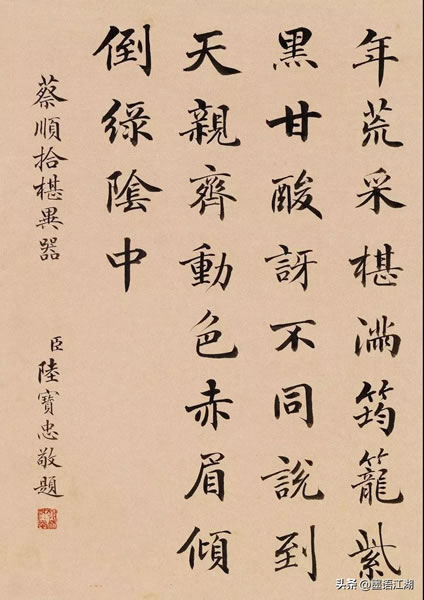 年荒采椹滿筠籠紫
黑甘酸訝不同說到
天親齊動色赤眉傾
倒綠陰中
蔡順拾椹異器
臣陸寶忠敬題
头条 @墨语江湖